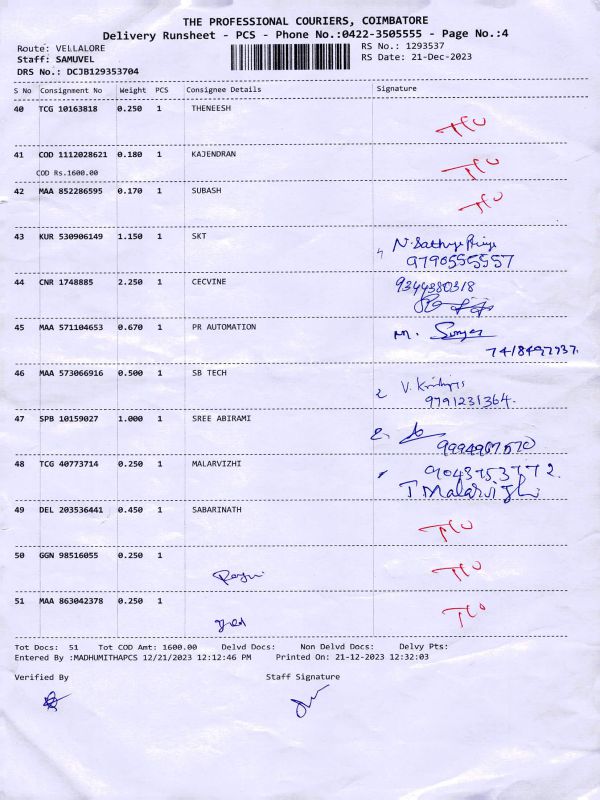 THE PROFESSIONAL COURIERS, COIMBATORE
Delivery Runsheet - PCS - Phone No.:0422-3505555 - Page No.:4
Route: VELLALORE RS No.: 1293537
Staff: SAMUVEL RS Date: 21-Dec-2023
DRS No.: DCJB129353704
S No Consignment No Weight PCS Consignee Details Signature
40 TCG 10163818 0.250 1 THENEESH
41 COD 1112028621 0.180 1 KAJENDRAN
COD Rs.1600.00
42 MAA 852286595 0.170 1 SUBASH
43 KUR 530906149 1.150 1 SKT
9790555557
44 CNR 1748885 2.250 1 CECVINE 9344380318
45 MAA 571104653 0.670 1 PR AUTOMATION M.
7418497937
46 MAA 573066916 0.500 1 SB TECH V.
9791231364
47 SPB 10159027 1.000 1 SREE ABIRAMI
48 TCG 40773714 0.250 1 MALARVIZHI
T Malarvizhi
49 DEL 203536441 0.450 1 SABARINATH
50 GGN 98516055 0.250 1
51 MAA 863042378 0.250 1
Tot Docs: 51 Tot COD Amt: 1600.00 Delvd Docs: Non Delvd Docs: Delvy Pts:
Entered By :MADHUMITHAPCS 12/21/2023 12:12:46 PM Printed On: 21-12-2023 12:32:03
Verified By Staff Signature